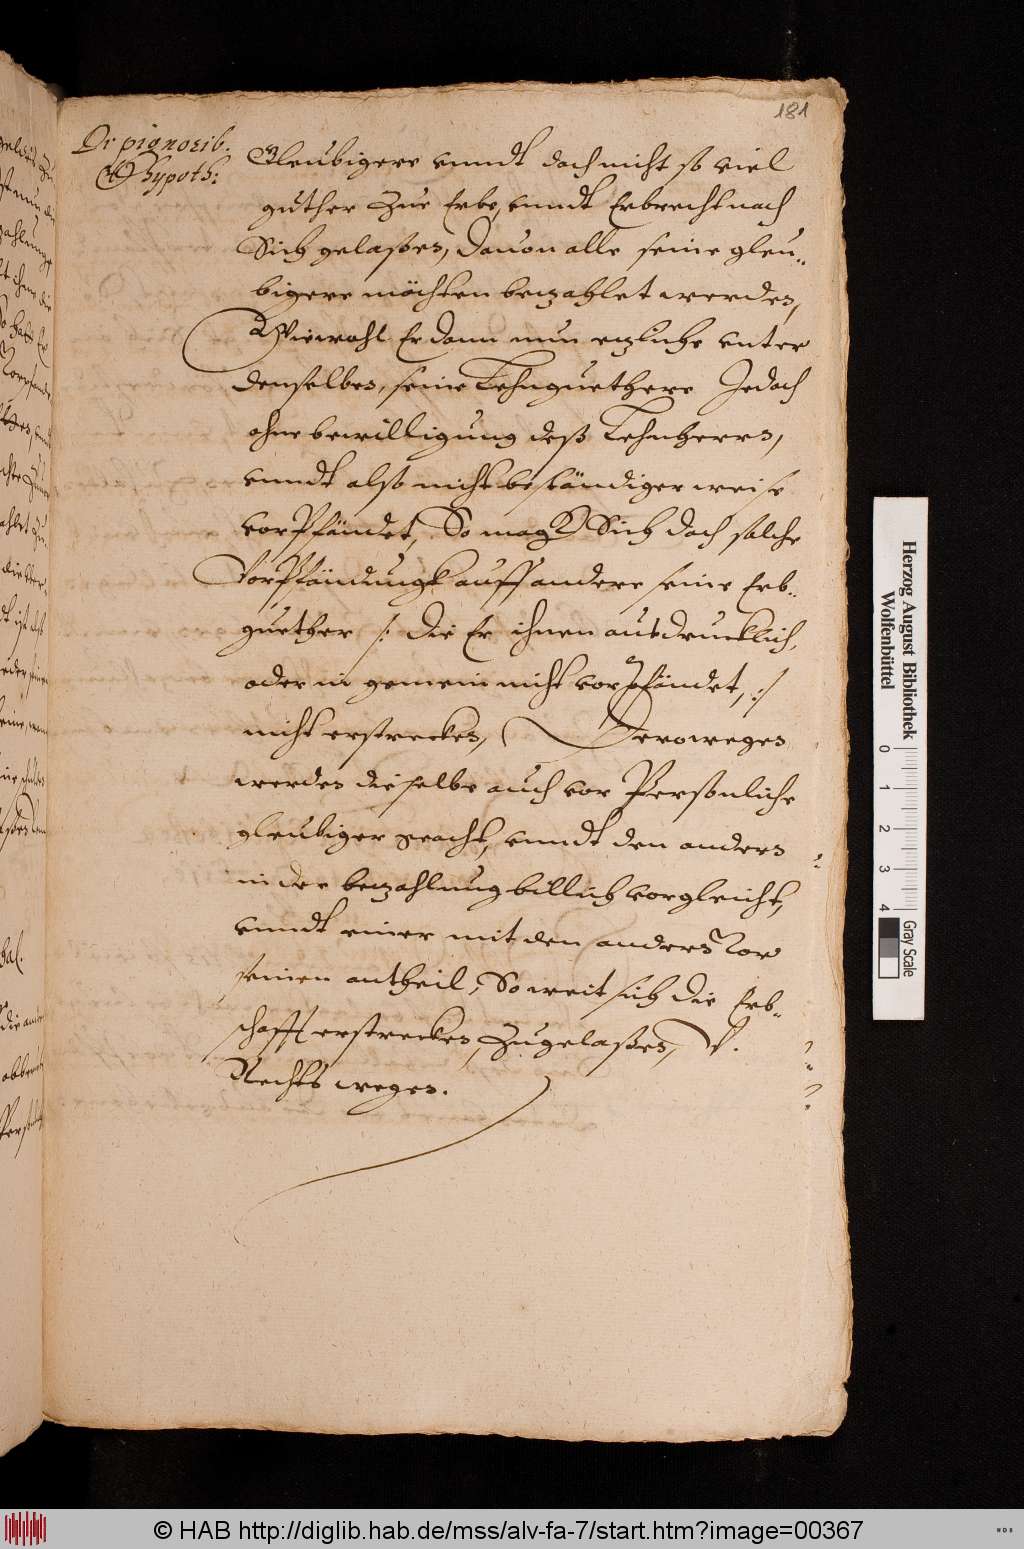 181
De pignorib.
& hypoth:
Gleubigere vnndt doch nicht so viel
guther Zue Erbe, vnndt Erbrecht nach
Sich gelaßen, dauon alle seine gleu-
bigere möchten bezahlet werden,
Wiewohl Er dann nun etzliche vnter
denselben, seine Lehnguethere Jedoch
ohne bewilligung deß Lehnherrn,
vnndt also nicht beständiger weise
vorPfändet, So mag Sich doch solche
VorPfändungk auff andere seine Erb-
guether /: die Er ihnen ausdrucklich,
oder in gemein nicht vorPfändet, :/
nicht erstrecken, Derowegen
werden dieselbe auch vor Persönliche
gleubiger geacht, vnndt den andern
in der bezahlung billich vorgleicht,
vnndt einer mit den andern Zor
seinen antheil, So weit sich die Erb-
schafft erstrecken, Zugelaßen, V.
Rechts wegen.
Herzog August Bibliothek
Wolfenbüttel
0 1 2 3 4
Gray Scale
© HAB http://diglib.hab.de/mss/alv-fa-7/start.htm?image=00367